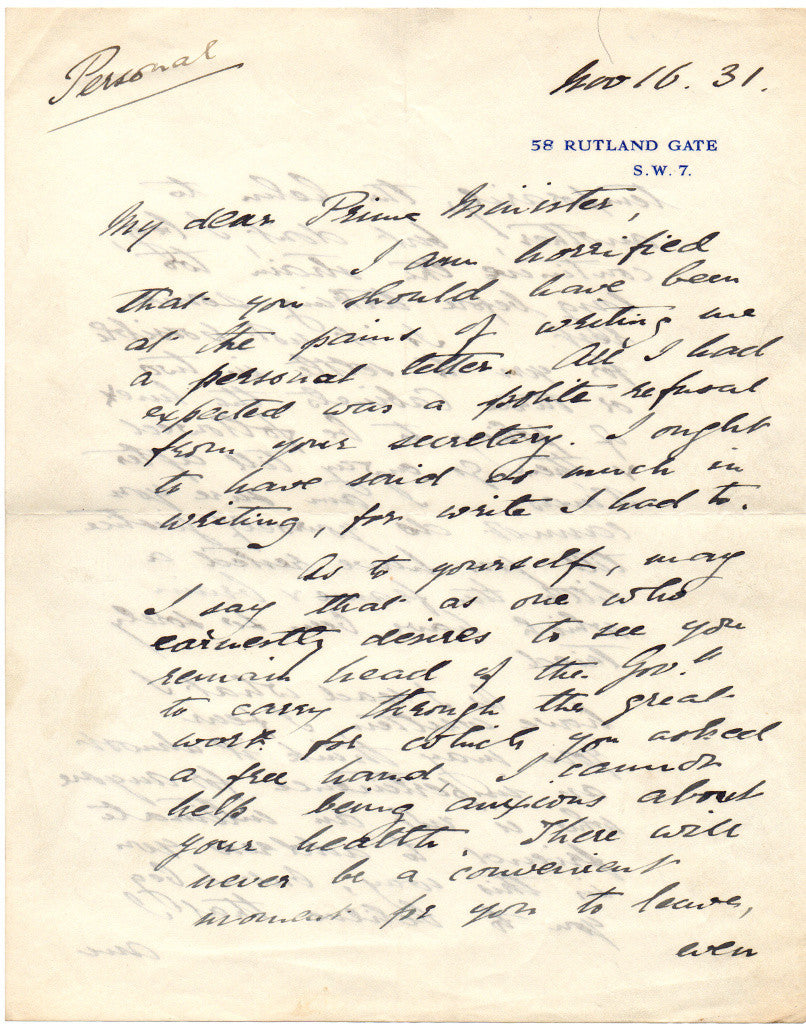 Personal
Nov 16. 31.
58 RUTLAND GATE
S.W. 7.
My dear Prime Minister,
I am horrified
that you should have been
at the pains of writing me
a personal letter. All I had
expected was a polite refusal
from your secretary. I ought
to have said as much in
writing, for write I had to.
As to yourself, may
I say that as one who
earnestly desires to see you
remain head of the Gov.t
to carry through the great
work for which you asked
a free hand, I cannot
help being anxious about
your health. There will
never be a convenient
moment for you to leave,
even